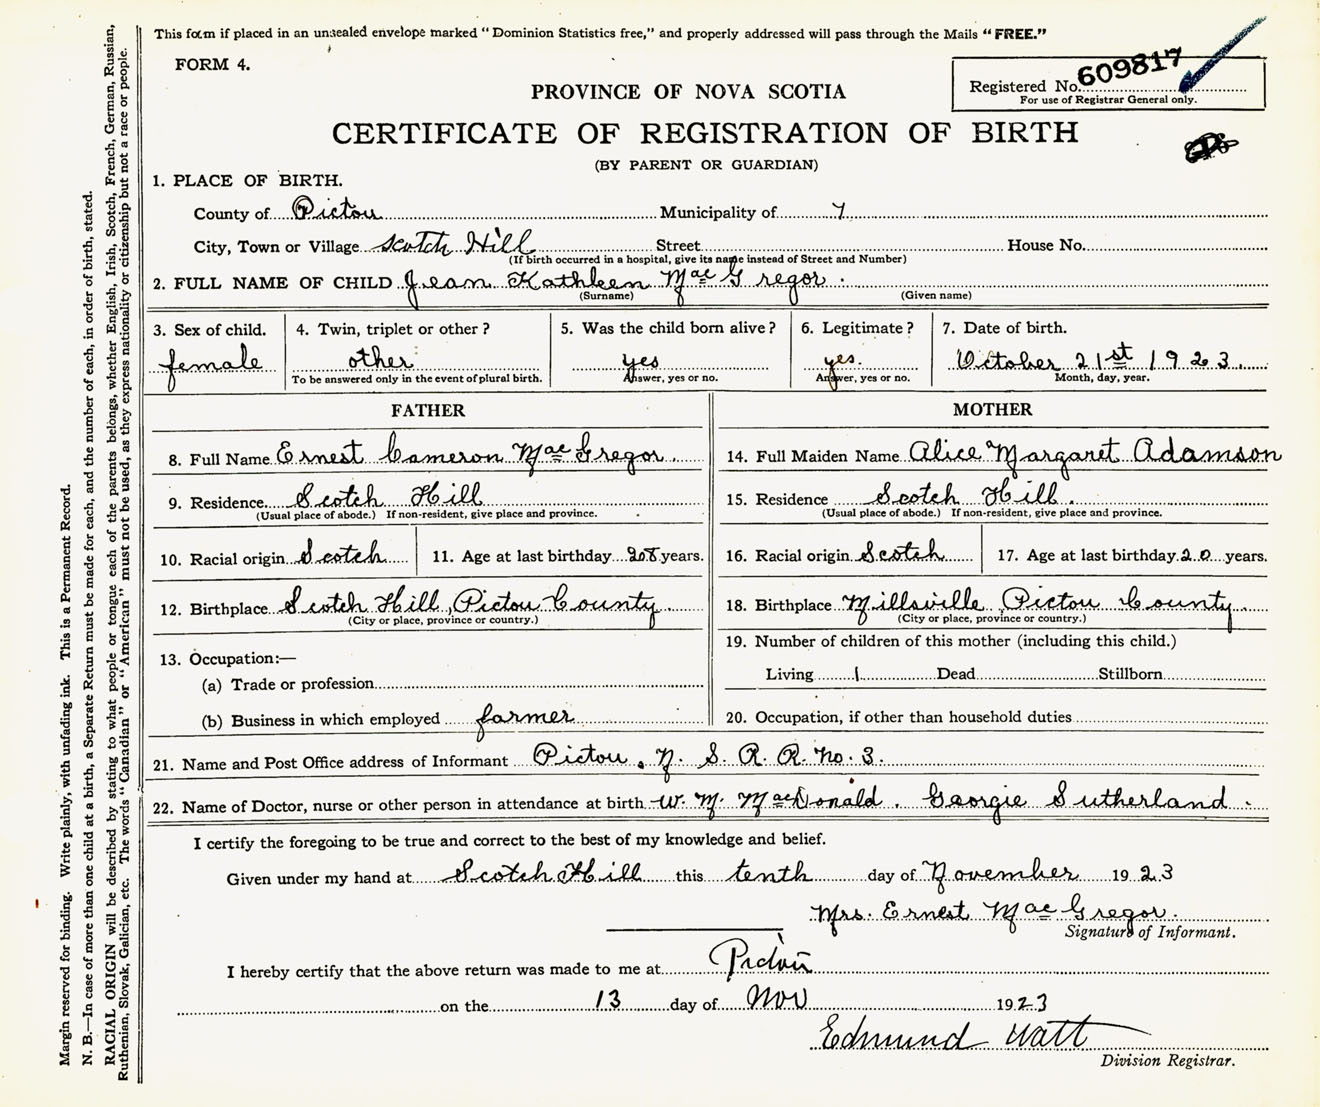 This form if placed in an unsealed envelope marked "Dominion Statistics free," and properly addressed will pass through the Mails "FREE."
FORM 4.
Registered No. 609817
For use of Registrar General only.
PROVINCE OF NOVA SCOTIA
CERTIFICATE OF REGISTRATION OF BIRTH
(BY PARENT OR GUARDIAN)
1. PLACE OF BIRTH.
County of Pictou Municipality of 7
City, Town or Village Scotch Hill Street House No.
(If birth occurred in a hospital, give its name instead of Street and Number)
2. FULL NAME OF CHILD Jean Kathleen MacGregor.
(Surname) (Given name)
3. Sex of child. 4. Twin, triplet or other? 5. Was the child born alive? 6. Legitimate? 7. Date of birth.
female other yes yes. October 21st 1923.
To be answered only in the event of plural birth. Answer, yes or no. Answer, yes or no. Month, day, year.
FATHER MOTHER
8. Full Name Ernest Cameron MacGregor. 14. Full Maiden Name Alice Margaret Adamson
9. Residence Scotch Hill 15. Residence Scotch Hill.
(Usual place of abode.) If non-resident, give place and province. (Usual place of abode.) If non-resident, give place and province.
10. Racial origin Scotch 11. Age at last birthday years. 16. Racial origin Scotch 17. Age at last birthday 20 years.
12. Birthplace Scotch Hill, Pictou County. 18. Birthplace Millsville, Pictou County.
(City or place, province or country.) (City or place, province or country.)
19. Number of children of this mother (including this child.)
13. Occupation:—
Living 1 Dead Stillborn
(a) Trade or profession
(b) Business in which employed farmer 20. Occupation, if other than household duties
21. Name and Post Office address of Informant Pictou, N. S. R. R. No. 3.
22. Name of Doctor, nurse or other person in attendance at birth W. M. MacDonald. Georgie Sutherland.
I certify the foregoing to be true and correct to the best of my knowledge and belief.
Given under my hand at Scotch Hill this tenth day of November 1923
Mrs. Ernest MacGregor.
Signature of Informant.
I hereby certify that the above return was made to me at Pictou
on the 13 day of Nov 1923
Edmund Watt
Division Registrar.
Margin reserved for binding. Write plainly, with unfading ink. This is a Permanent Record.
N. B.—In case of more than one child at a birth, a Separate Return must be made for each, and the number of each, in order of birth, stated.
RACIAL ORIGIN will be described by stating to what people or tongue each of the parents belongs, whether English, Irish, Scotch, French, German, Russian,
Ruthenian, Slovak, Galician, etc. The words "Canadian" or "American" must not be used, as they express nationality or citizenship but not a race or people.